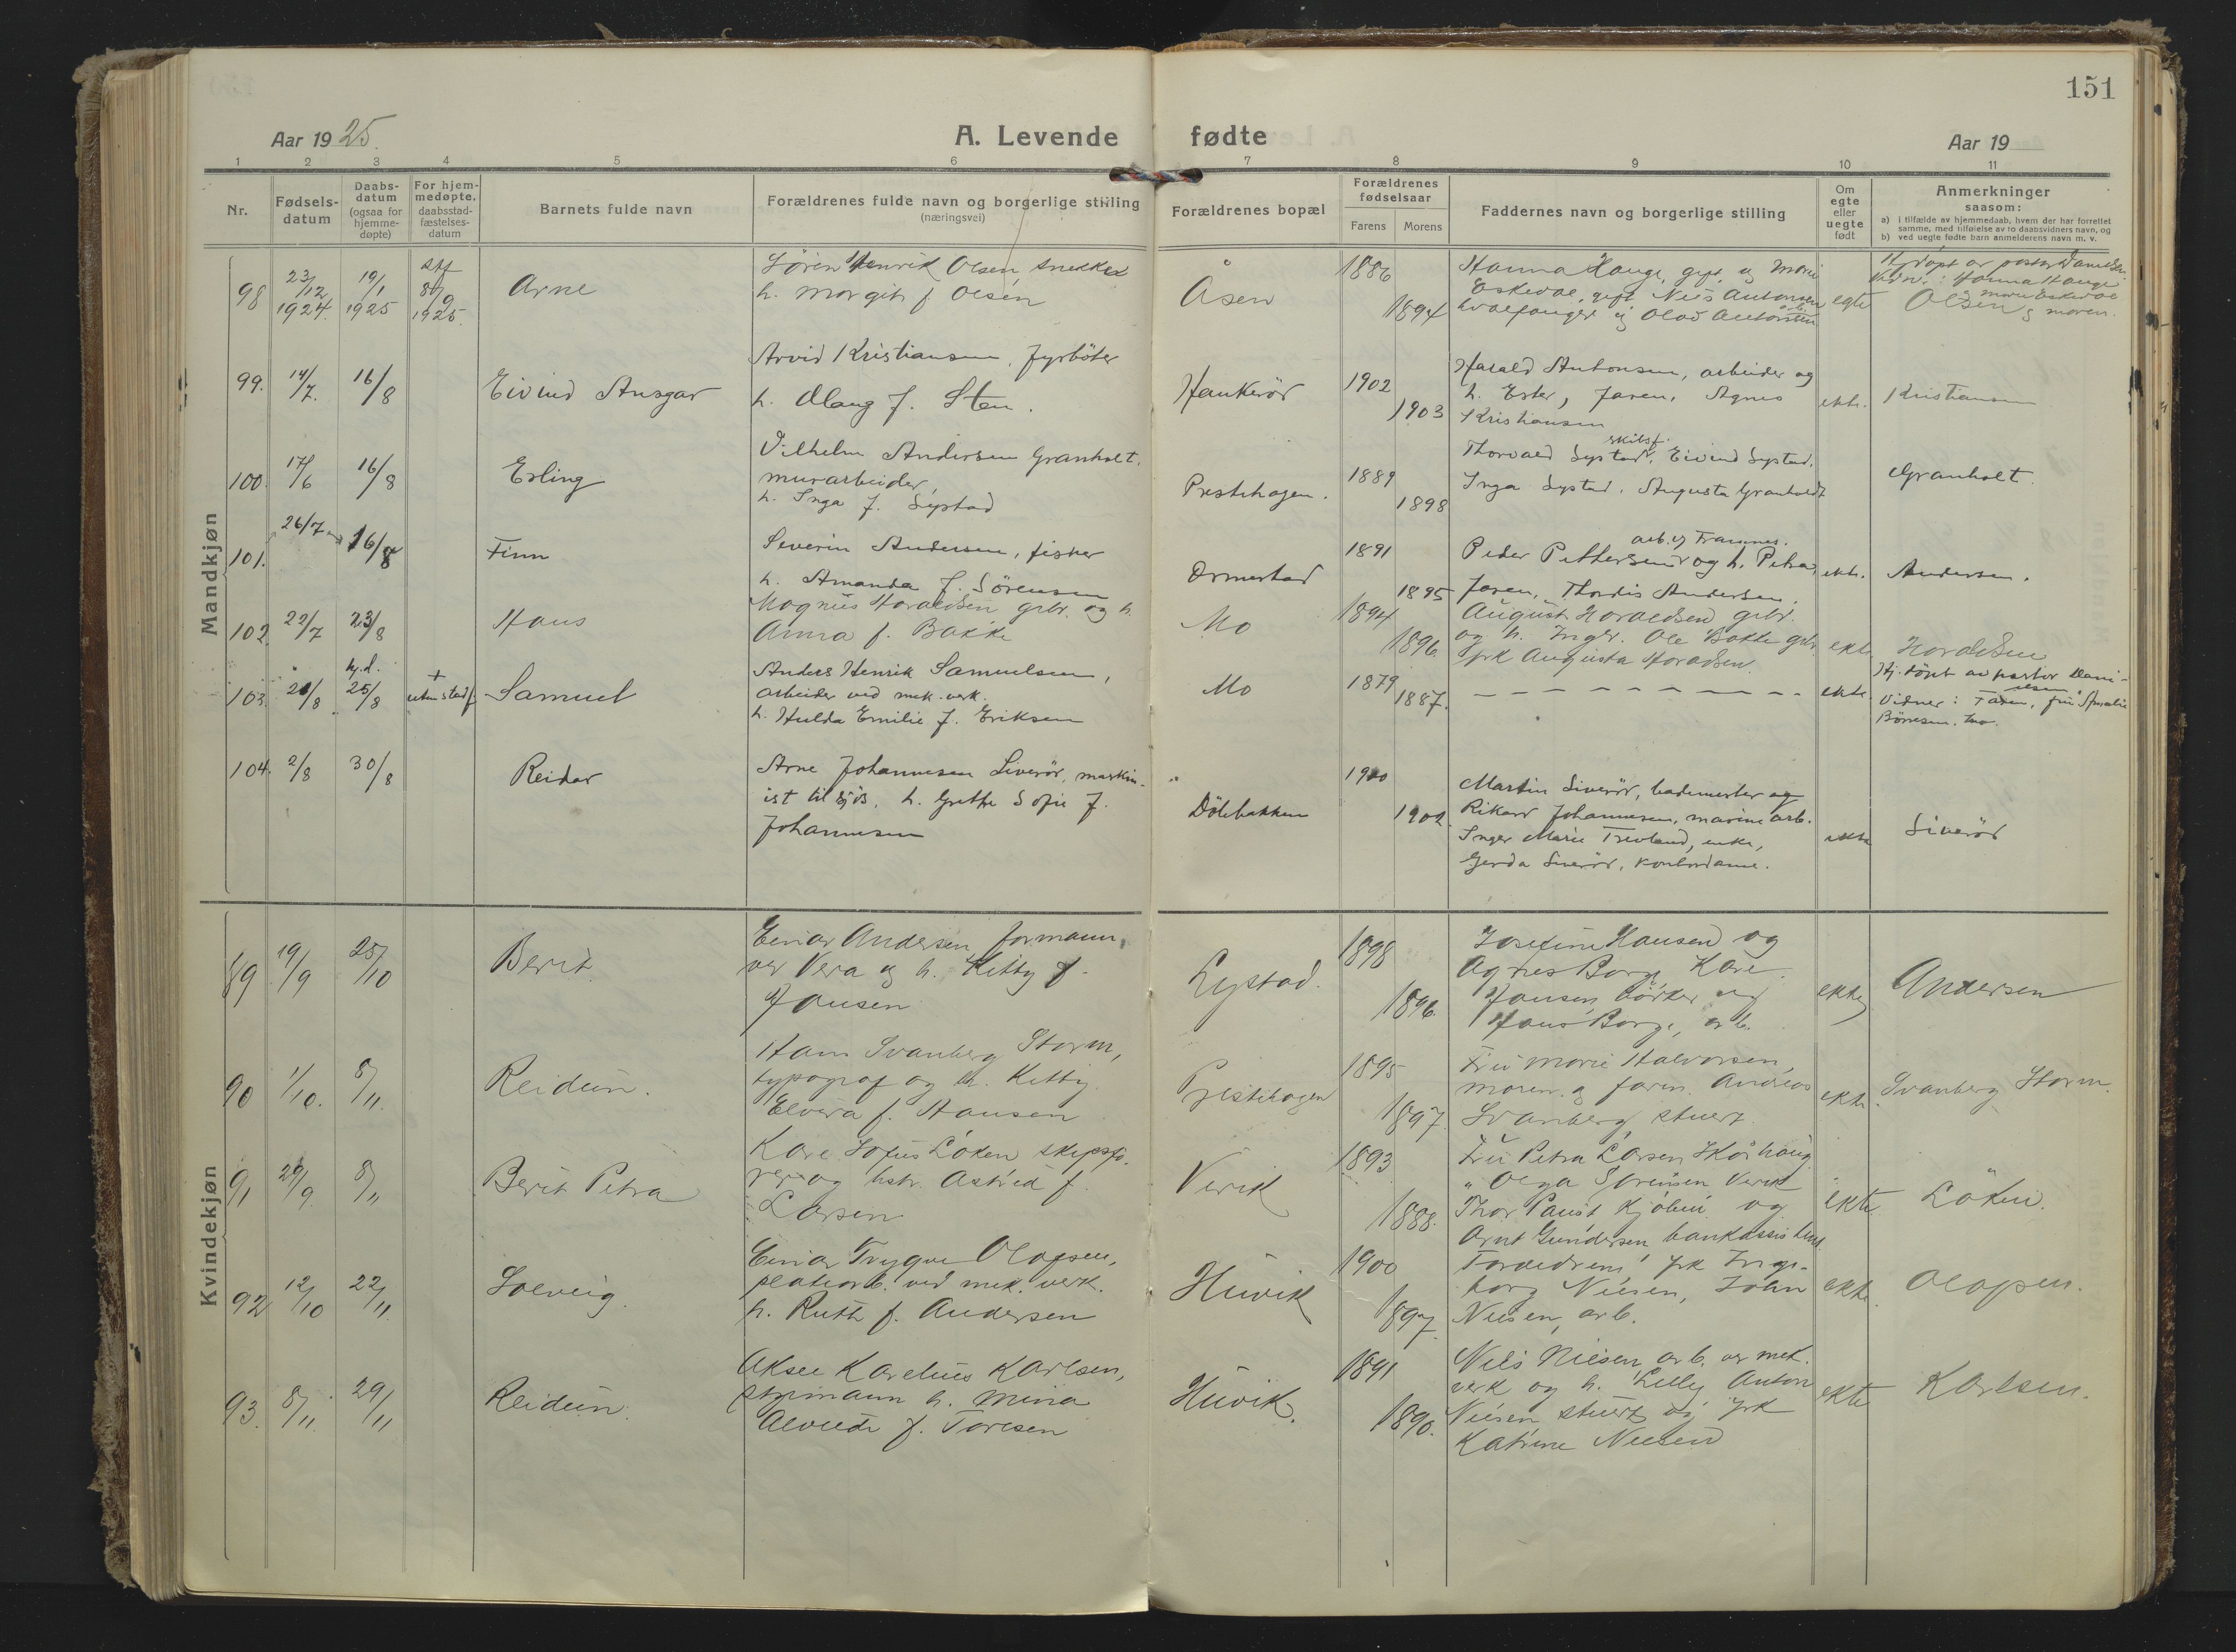 151
Aar 1925.
A. Levende fødte
Aar 19
1 2 3 4 5 6 7 8 9 10 11
Nr.
Fødsels-
datum
Daabs-
datum
(ogsaa for
hjemme-
døpte)
For hjem-
medøpte.
daabsstad-
fæstelses-
datum
Barnets fulde navn
Forældrenes fulde navn og borgerlige stilling
(næringsvei)
Forældrenes bopæl
Forældrenes
fødselsaar
Farens Morens
Faddernes navn og borgerlige stilling
Om
egte
eller
uegte
født
Anmerkninger
saasom:
a) i tilfælde av hjemmedaab, hvem der har forrettet
samme, med tilføielse av to daabsvidners navn, og
b) ved uegte fødte barn anmelderens navn m. v.
Mandkjøn
98
23/12
1924
19/1
1925
Stf
1925
Arne
Sören Henrik Olsen snekker
h. Margit f. Olsen
Åsen
1886
1894
Hanna Hauge, gift, og Marie
Eskedal, gift. Nils Antonsen
hvalfanger og Olav Antonsen
egte
Hj.døpt av pastor Danielsen
Vidn.: Hanna Hauge
Marie Eskedal
Olsen & moren.
99. 14/7. 16/8
Eivind Ansgar
Arvid Kristiansen, fyrböter
h. Olaug f. Sten.
Haukerör
1902
1903
Harald Antonsen, arbeider og
h. Ester, Faren, Agnes
Kristiansen
ekte.
Kristiansen
100. 17/6 16/8
Erling
Vilhelm Andersen Granholt,
murarbeider,
h. Inga f. Systad
Prestehagen.
1889
1898
Thorvald Systad, skibsf. Eivind Systad.
Inga Systad. Augusta Granholdt
Granholt.
101. 26/7 16/8
Finn
Severin Andersen, fisker
h. Amanda f. Sörensen
Ormestad
1891
1895
Peder Pettersen arb. v/ Framnes. og h. Petra,
Faren, Thordis Andersen.
ekte.
Andersen.
102. 22/7 23/8
Hans
Magnus Haraldsen grbr. og h.
Anna f. Bakke
Mo
1894
1896.
August Haraldsen grbr.
og h. Inger. Ole Bakke grbr.
frk Augusta Haraldsen
ekte
Haraldsen
103. 21/8 hj.d. 25/8 + uten stadf.
Samuel
Anders Henrik Samuelsen,
arbeider ved mek. verk.
h. Hulda Emilie f. Eriksen
Mo
1879
1887.
— — — — — — — — —
ekte
Hj. döpt av pastor Dani-
elsen.
Vidner: Faren, fru Amalie
Börresen. Mo.
104. 2/8 30/8
Reidar
Arne Johannesen Siverör, maskin-
ist til sjös, h. Grethe Sofie f.
Johannesen
Dölebakken
1900
1902.
Martin Siverör, bademester og
Rikard Johannesen, marine arb.
Inger Marie Trevland, enke,
Gerda Siverör, kontordame.
ekte
Siverör
Kvindekjøn
89 19/9 25/10
Berit
Einar Andersen formann
ver Vera og h. Kitty f.
Jansen
Lystad.
1898
1896.
Josefine Hansen og
Agnes Borge, Kare
Jansen, og
Hans Borge, arb.
ekte
Andersen
90 1/10. 8/11.
Reidun.
Hans Svanberg Storm,
typograf og h. Kitty
Elvira f. Hansen
Prestehagen
1895
1897.
Fru Marie Halvorsen,
moren og faren. Andreas
Svanberg, stuert.
ekte.
Svanberg Storm.
91 29/9. 8/11
Berit Petra
Kare Sofus Löken skipsfö-
rer og hstr. Astrid f.
Larsen
Verik
1893
1888.
Fru Petra Larsen Skorhaug
" Olga Sörensen Verik
Thor Paust Kjöbm. og
Arnt Gundersen bankassistent.
ekte
Löken.
92 12/10 22/11.
Solveig.
Einar Trygve Olafsen,
platearb. ved mek. verk.
h. Ruth f. Andersen
Huvik
1900
1897.
Foreldrene frk Inge-
borg Nilsen, John
Nilsen, arb.
ekte.
Olafsen.
93. 8/11. 29/11
Reidun.
Aksel Karelius Karlsen,
styrmann h. Mina
Alvilde f. Toresen
Huvik.
1891
1890.
Nils Nilsen arb. ver mek.
verk og h. Lilly Anton
Nilsen stuert og frk
Katrine Nilsen
ekte
Karlsen.